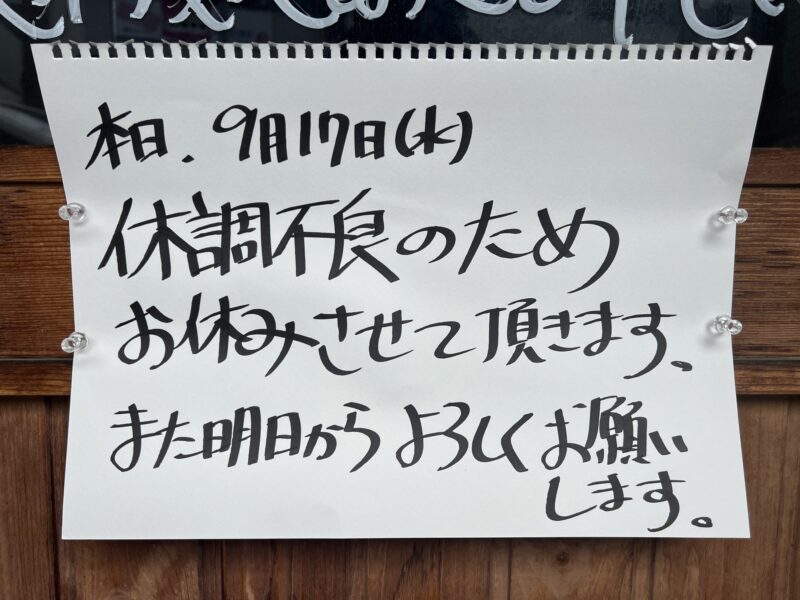 本日、9月17日(水)
休調不良のため
お休みさせて頂きます。
また明日からよろしくお願い
します。